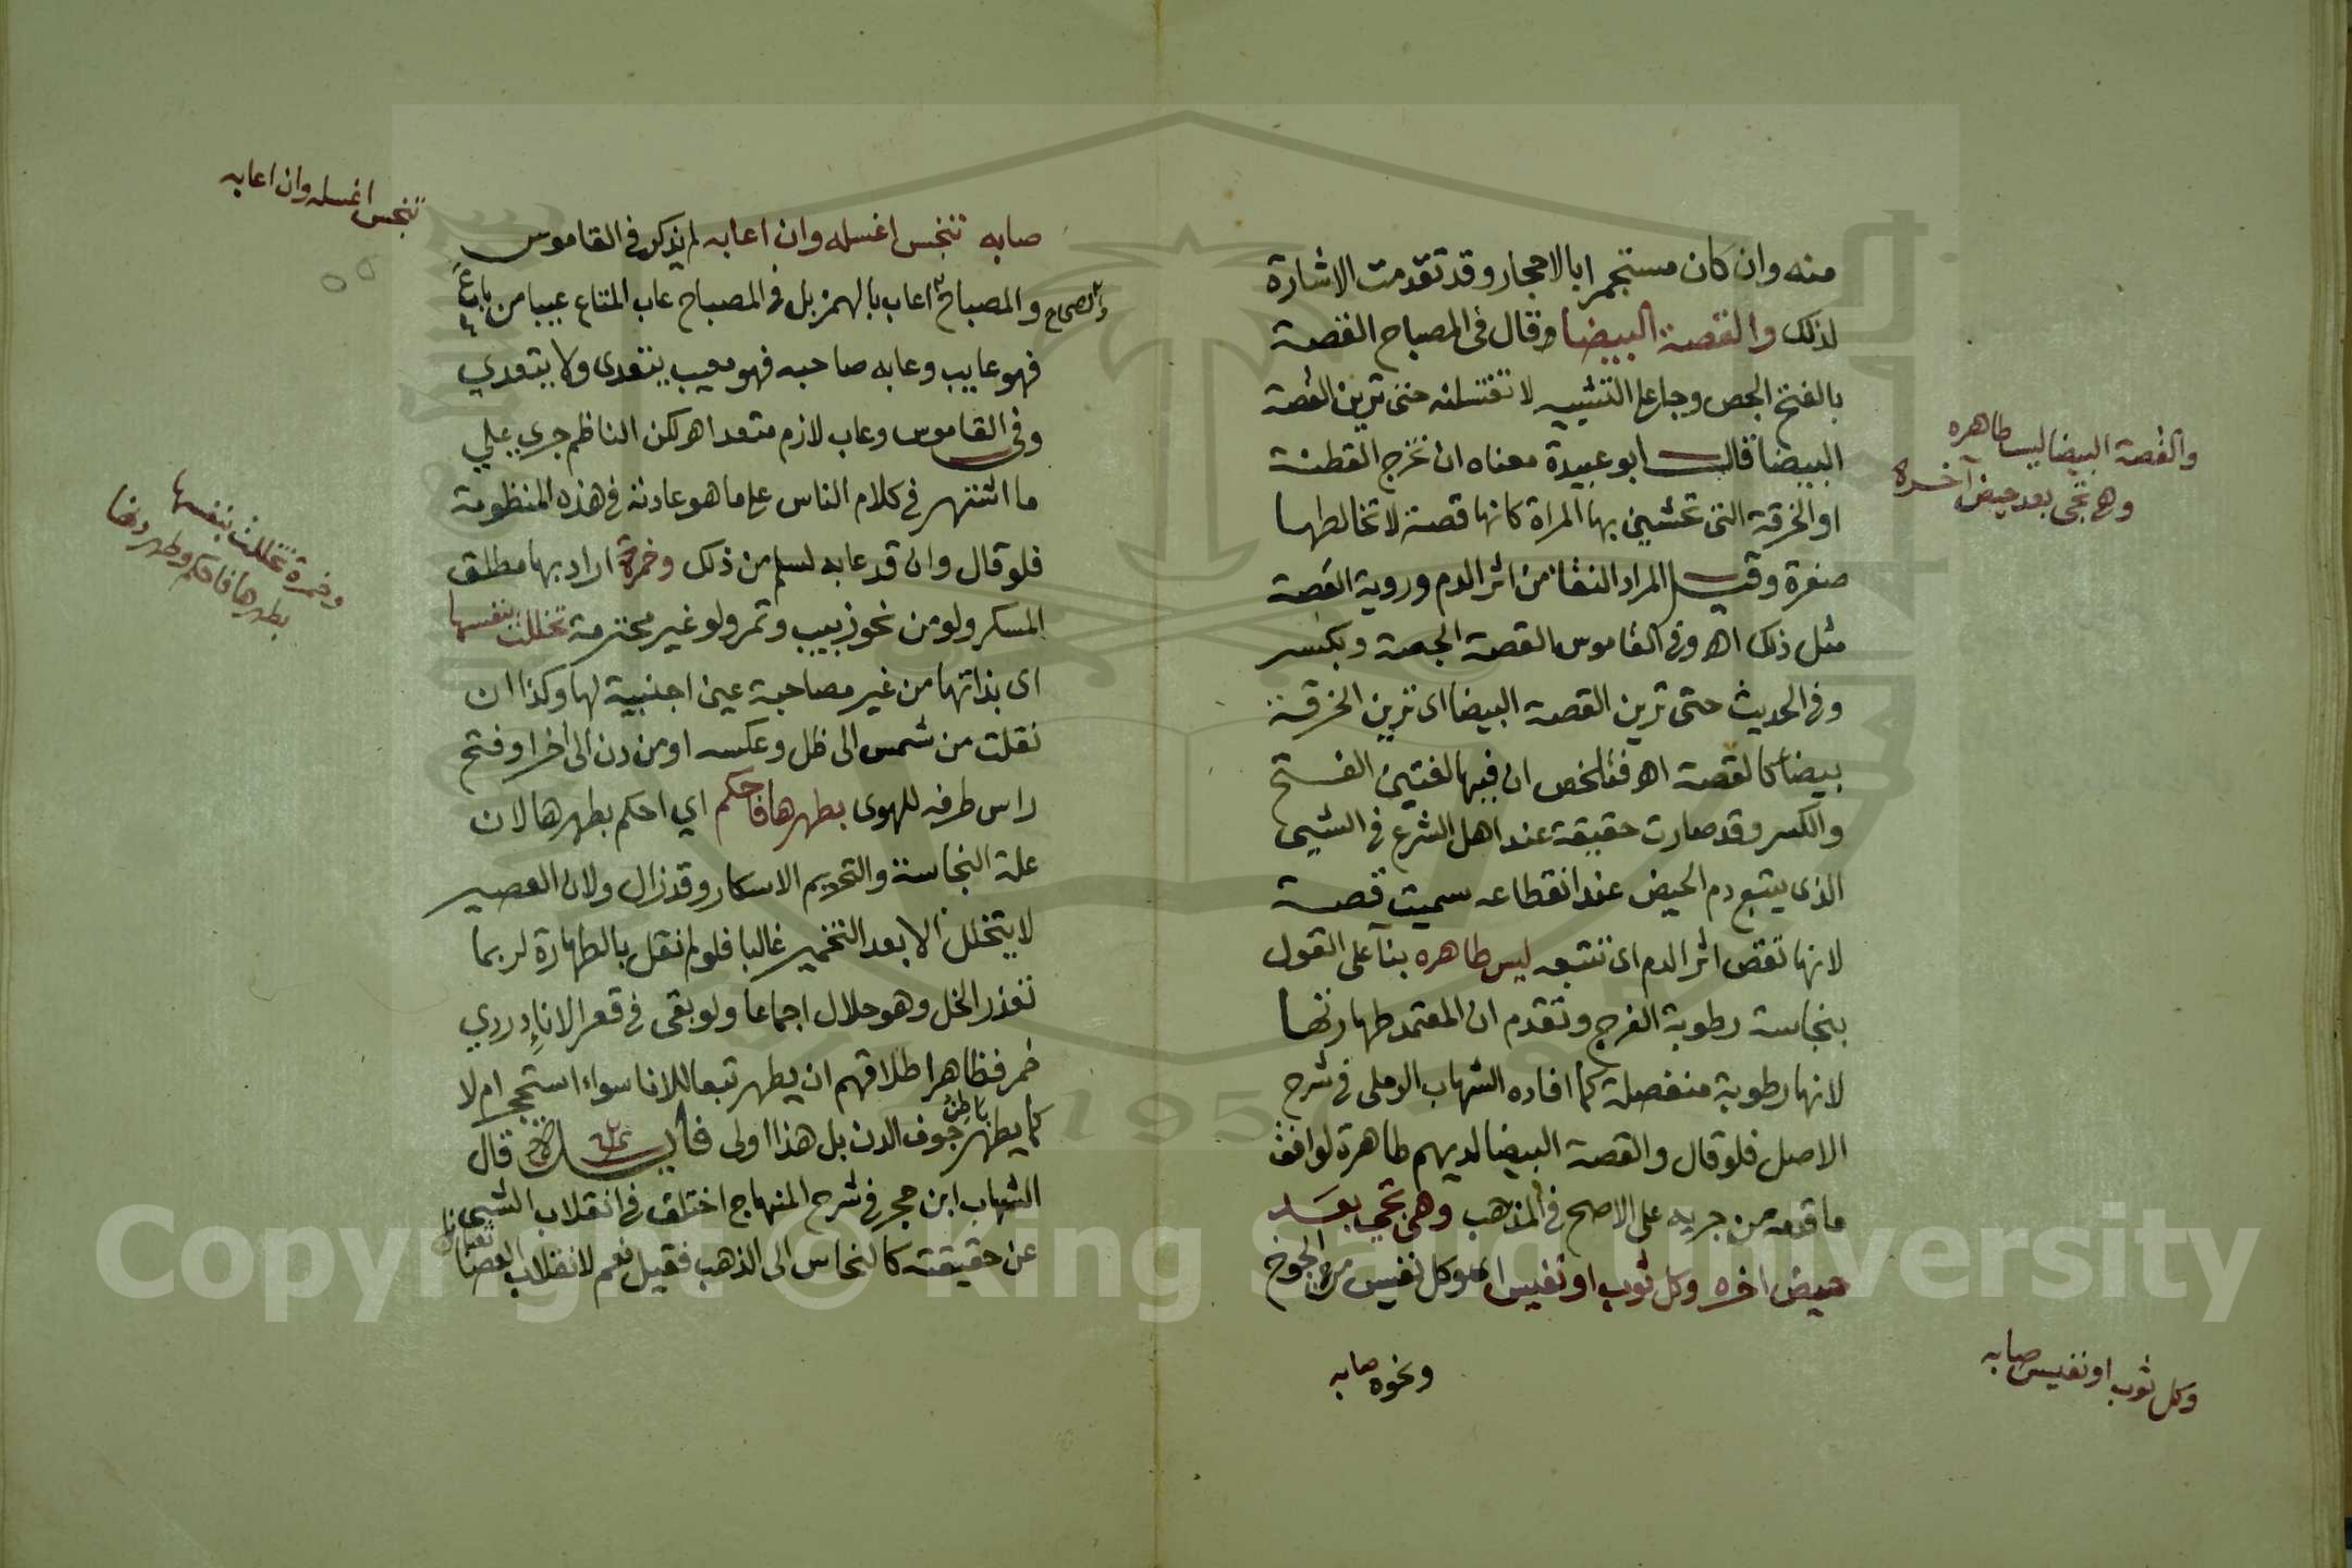 منه وان كان مستجمرا بالاحجار وقد تقدمت الاشارة
لذلك والقصة البيضا قال فى المصباح القصة
بالفتح الجص وجا على التشبيه لا تغتسلن حتى ترين القصة
البيضا قال ابو عبيدة معناه ان تخرج القطنة
او الخرقة التى تحتشى بها المراة كانها قصة لا تخالطها
صفرة وقيل المراد النقا من اثر الدم وروية القصة
مثل ذلك اه وفى القاموس القصة الجصة وبكسر
وفى الحديث حتى ترين القصة البيضا اى ترين الخرقة
بيضا كالقصة اه فتلخص ان فيها لغتين الفتح
والكسر وقد صارت حقيقة عند اهل الشرع فى الشيى
الذى يتبع دم الحيض عند انقطاعه سميت قصة
لانها تقص اثر الدم اى تتبعه ليس طاهره بنآ على القول
بنجاسة رطوبة الفرج وتقدم ان المعتمد طهارتها
لانها رطوبة منفصلة كما افاده الشهاب الرملى فى شرح
الاصل فلو قال والقصة البيضا لديهم طاهرة لوافق
ما قدمه من جريه على الاصح فى المذهب وهى تجى بعد
حيض اخره وكل ثوب او نفيس اى وكل نفيس من الجوخ
ونحوه صابه
والقصة البيضا ليس طاهره
وهى تجى بعد حيض آخره
وكل ثوب او نفيس صابه
صابه تنجس اغسله وان اعابه لم يذكر فى القاموس
والصحاح والمصباح اعاب بالهمز بل فى المصباح عاب المتاع عيبا من باب
فهو عايب وعابه صاحبه فهو معيب يتعدى ولا يتعدي
وفى القاموس وعاب لازم متعد اه لكن الناظم جري علي
ما اشتهر فى كلام الناس على ما هو عادته فى هذه المنظومة
فلو قال وان قد عابه لسلم من ذلك وخمرة اراد بها مطلق
المسكر ولو من نحو زبيب وتمر ولو غير محترمة تخللت بنفسها
اى بذاتها من غير مصاحبة عين اجنبية لها وكذا ان
نقلت من شمس الى ظل وعكسه او من دن الى اخر او فتح
راس ظرفه للهوى بطهرها فاحكم اي احكم بطهرها لان
علة النجاسة والتحريم الاسكار وقد زال ولان العصير
لا يتخلل الا بعد التخمير غالبا فلو لم نقل بالطهارة لربما
تعذر الخل وهو حلال اجماعا ولو بقى فى قعر الاناء دردي
خمر فظاهر اطلاقهم ان يطهر تبعا للانا سواء استحجر ام لا
كما يطهر باطن جوف الدن بل هذا اولى قال
الشهاب ابن حجر فى شرح المنهاج اختلف فى انقلاب الشيى
عن حقيقته كالنحاس الى الذهب فقيل نعم لانقلاب العصا
تنجس اغسله وان اعابه
وخمرة تخللت بنفسها
بطهرها فاحكم وطهر دنها